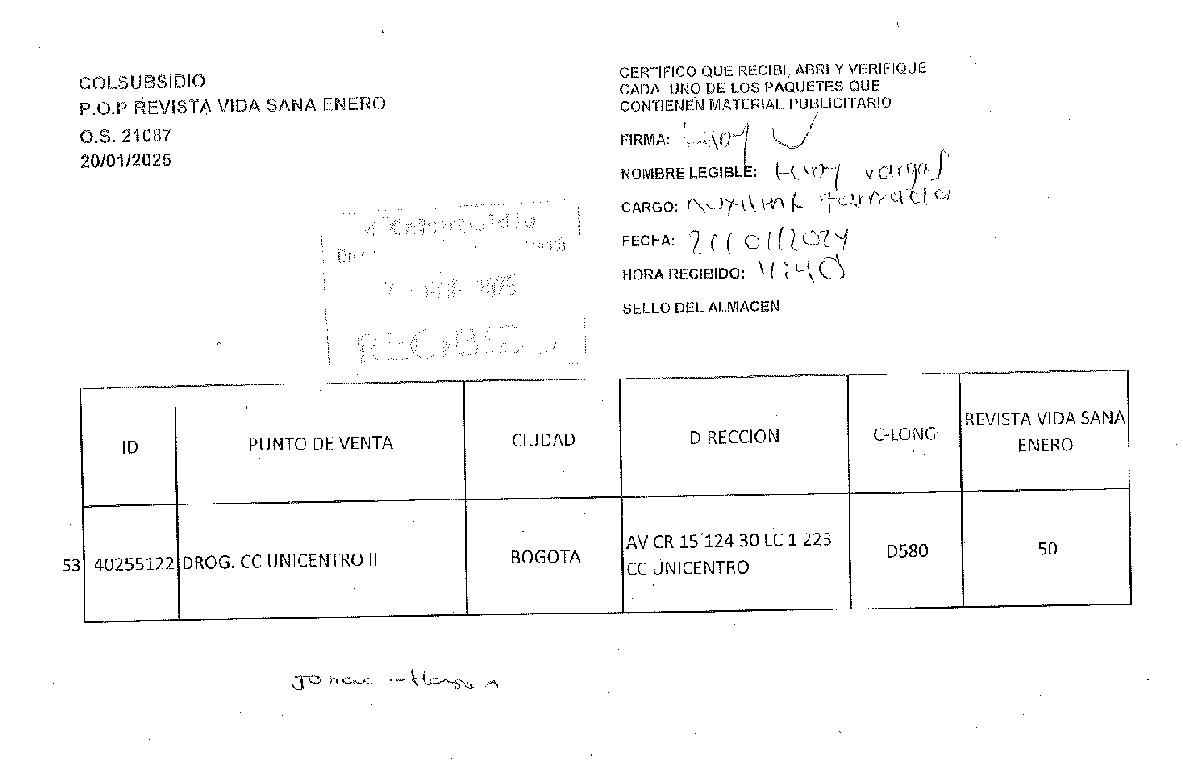 COLSUBSIDIO
P.O.P REVISTA VIDA SANA ENERO
O.S. 21087
20/01/2025
CERTIFICO QUE RECIBI, ABRI Y VERIFIQUE
CADA UNO DE LOS PAQUETES QUE
CONTIENEN MATERIAL PUBLICITARIO
FIRMA:
NOMBRE LEGIBLE: Leidy Vargas
CARGO: Auxiliar farmacia
FECHA: 21/01/2024
HORA RECIBIDO: 11:40
SELLO DEL ALMACEN
RECIBIDO
ID PUNTO DE VENTA CIUDAD DIRECCION C-LONG REVISTA VIDA SANA
ENERO
53 40255122 DROG. CC UNICENTRO II BOGOTA AV CR 15 124 30 LC 1 225 D580 50
CC UNICENTRO